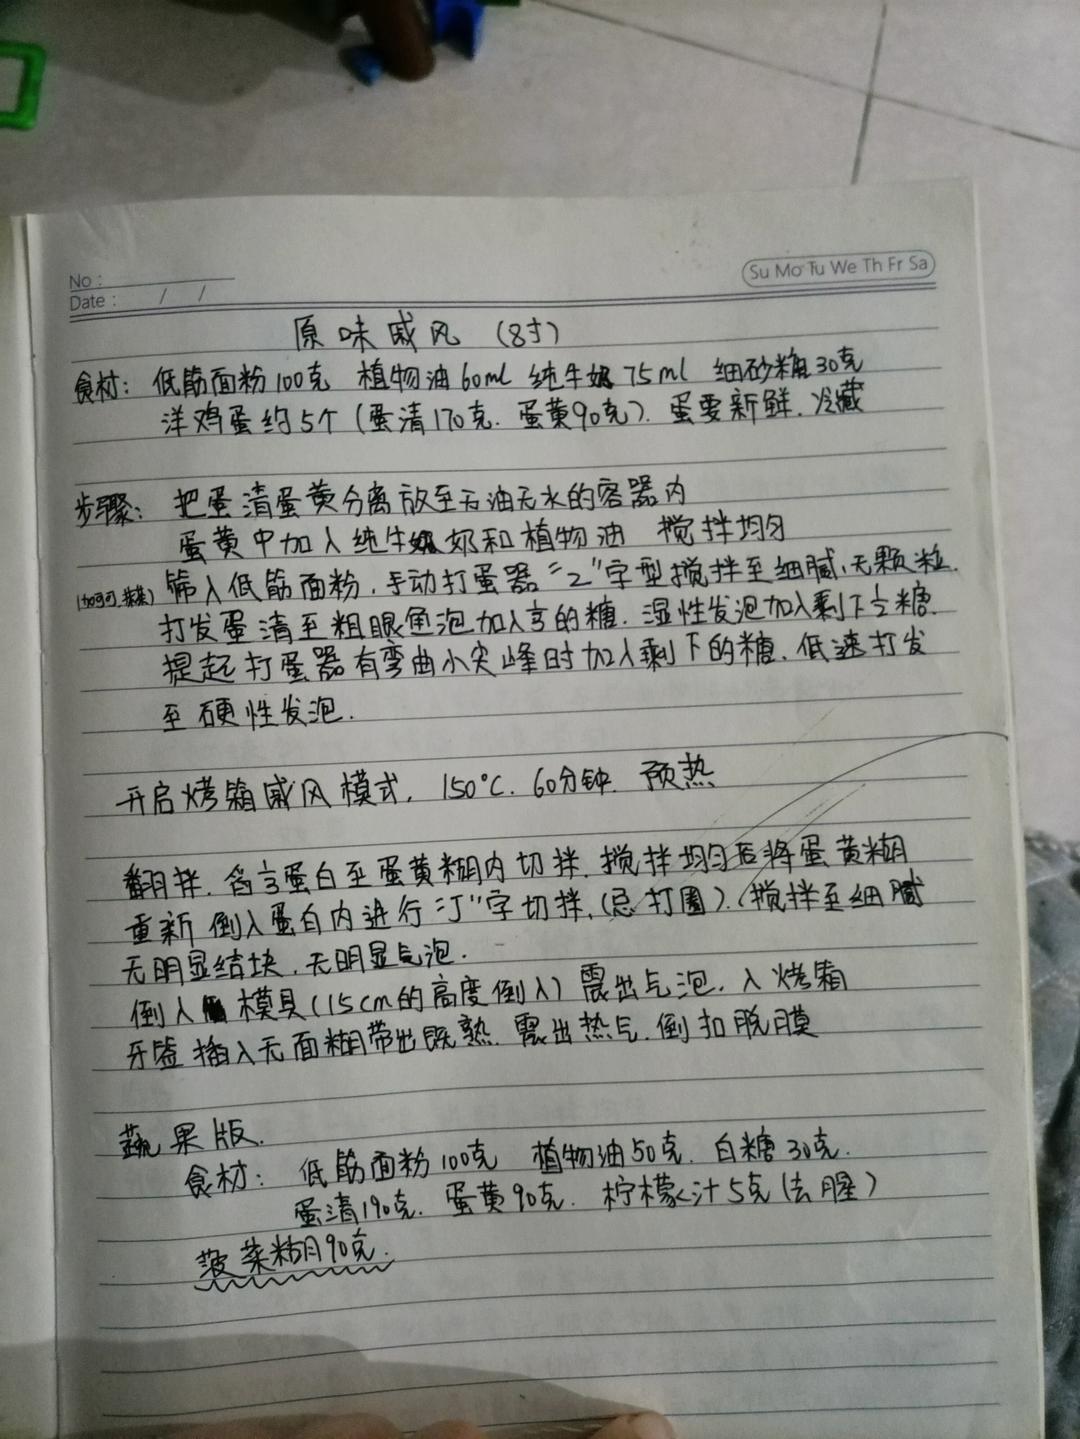 No：
Date： / /
Su Mo Tu We Th Fr Sa
原味戚风（8寸）
食材：低筋面粉100克 植物油60ml 纯牛奶75ml 细砂糖30克
洋鸡蛋约5个（蛋清170克．蛋黄90克）．蛋要新鲜．冷藏
步骤：把蛋清蛋黄分离放至无油无水的容器内
蛋黄中加入纯牛奶和植物油 搅拌均匀
筛入低筋面粉．手动打蛋器"Z"字型搅拌至细腻、无颗粒．
打发蛋清至粗眼鱼泡加入⅓的糖．湿性发泡加入剩下½糖．
提起打蛋器有弯曲小尖峰时加入剩下的糖．低速打发
至硬性发泡．
开启烤箱戚风模式．150℃．60分钟．预热
翻拌．舀⅓蛋白至蛋黄糊内切拌．搅拌均匀后将蛋黄糊
重新倒入蛋白内进行"J"字切拌．（忌打圈）．（搅拌至细腻
无明显结块．无明显气泡．
倒入模具（15cm的高度倒入）震出气泡．入烤箱
牙签插入无面糊带出既熟．震出热气．倒扣脱膜
蔬果版．
食材：低筋面粉100克 植物油50克．白糖30克．
蛋清190克．蛋黄90克．柠檬汁5克（去腥）
菠菜糊90克．